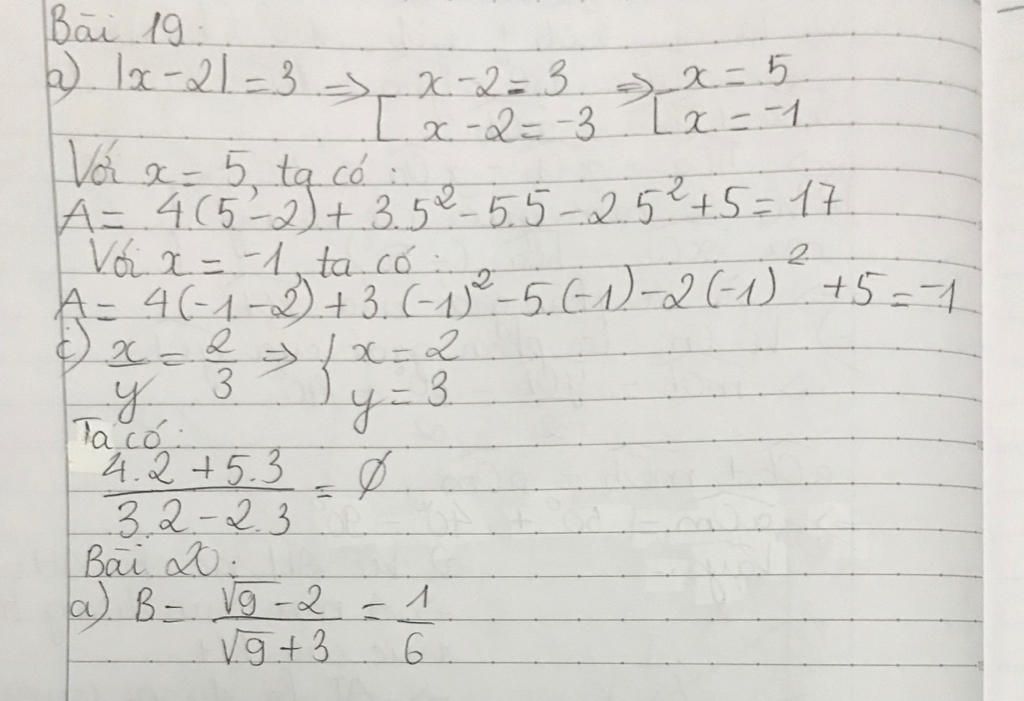 Bài 19:
a) |x-2| = 3 => [ x-2=3 => [ x = 5
x-2=-3 x = -1
Với x = 5, ta có:
A = 4(5-2) + 3.5² - 5.5 - 2.5² + 5 = 17
Với x = -1, ta có:
A = 4(-1-2) + 3.(-1)² - 5.(-1) - 2(-1)² + 5 = -1
c) x/y = 2/3 => { x = 2
y = 3
Ta có:
(4.2 + 5.3)/(3.2 - 2.3) = ∅
Bài 20:
a) B = (√9 - 2)/(√9 + 3) = 1/6